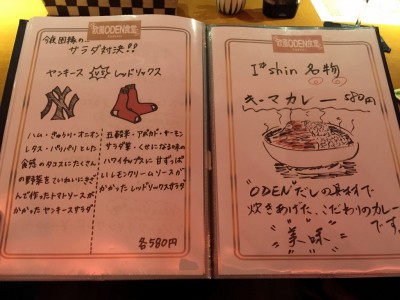 サラダ対決!!
ヤンキース VS レッドソックス
NY
ハム・きゅうり・オニオン
レタス・パリパリとした
食感のタコスにたくさん
の野菜をていねいにきざ
んで作ったトマトソースが
かかったヤンキースサラダ
五穀米・アボカド・サーモン
サラダ菜・くせになる味の
ハワイチップスに甘ずっぱ
いレモンクリームソースが
かかったレッドソックスサラダ
各580円
ODEN
I's shin 名物
キーマカレー 580円
"ODENだしの具材で
炊きあげた、こだわりのカレー
です。
"美味"